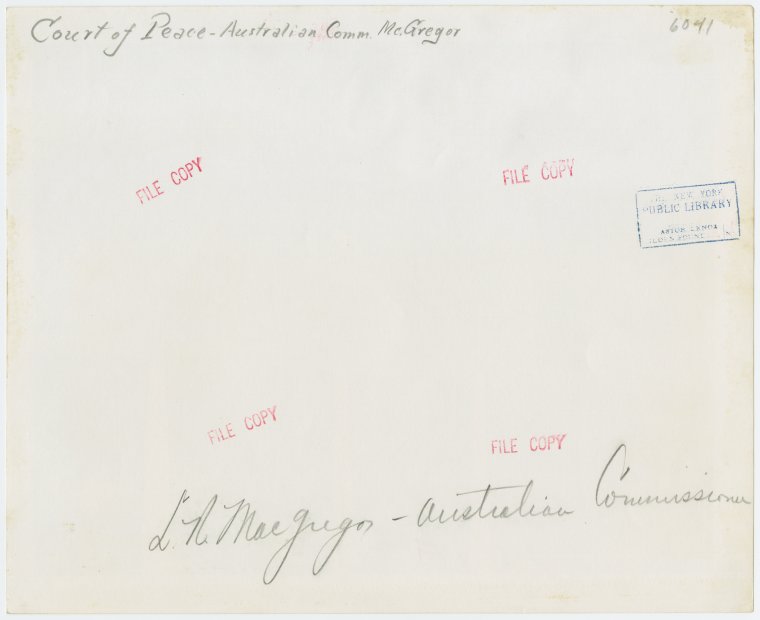 Court of Peace - Australian Comm. McGregor
6041
FILE COPY
FILE COPY
THE NEW YORK
PUBLIC LIBRARY
ASTOR LENOX
FILE COPY
FILE COPY
L. R. MacGregor - Australian Commissioner